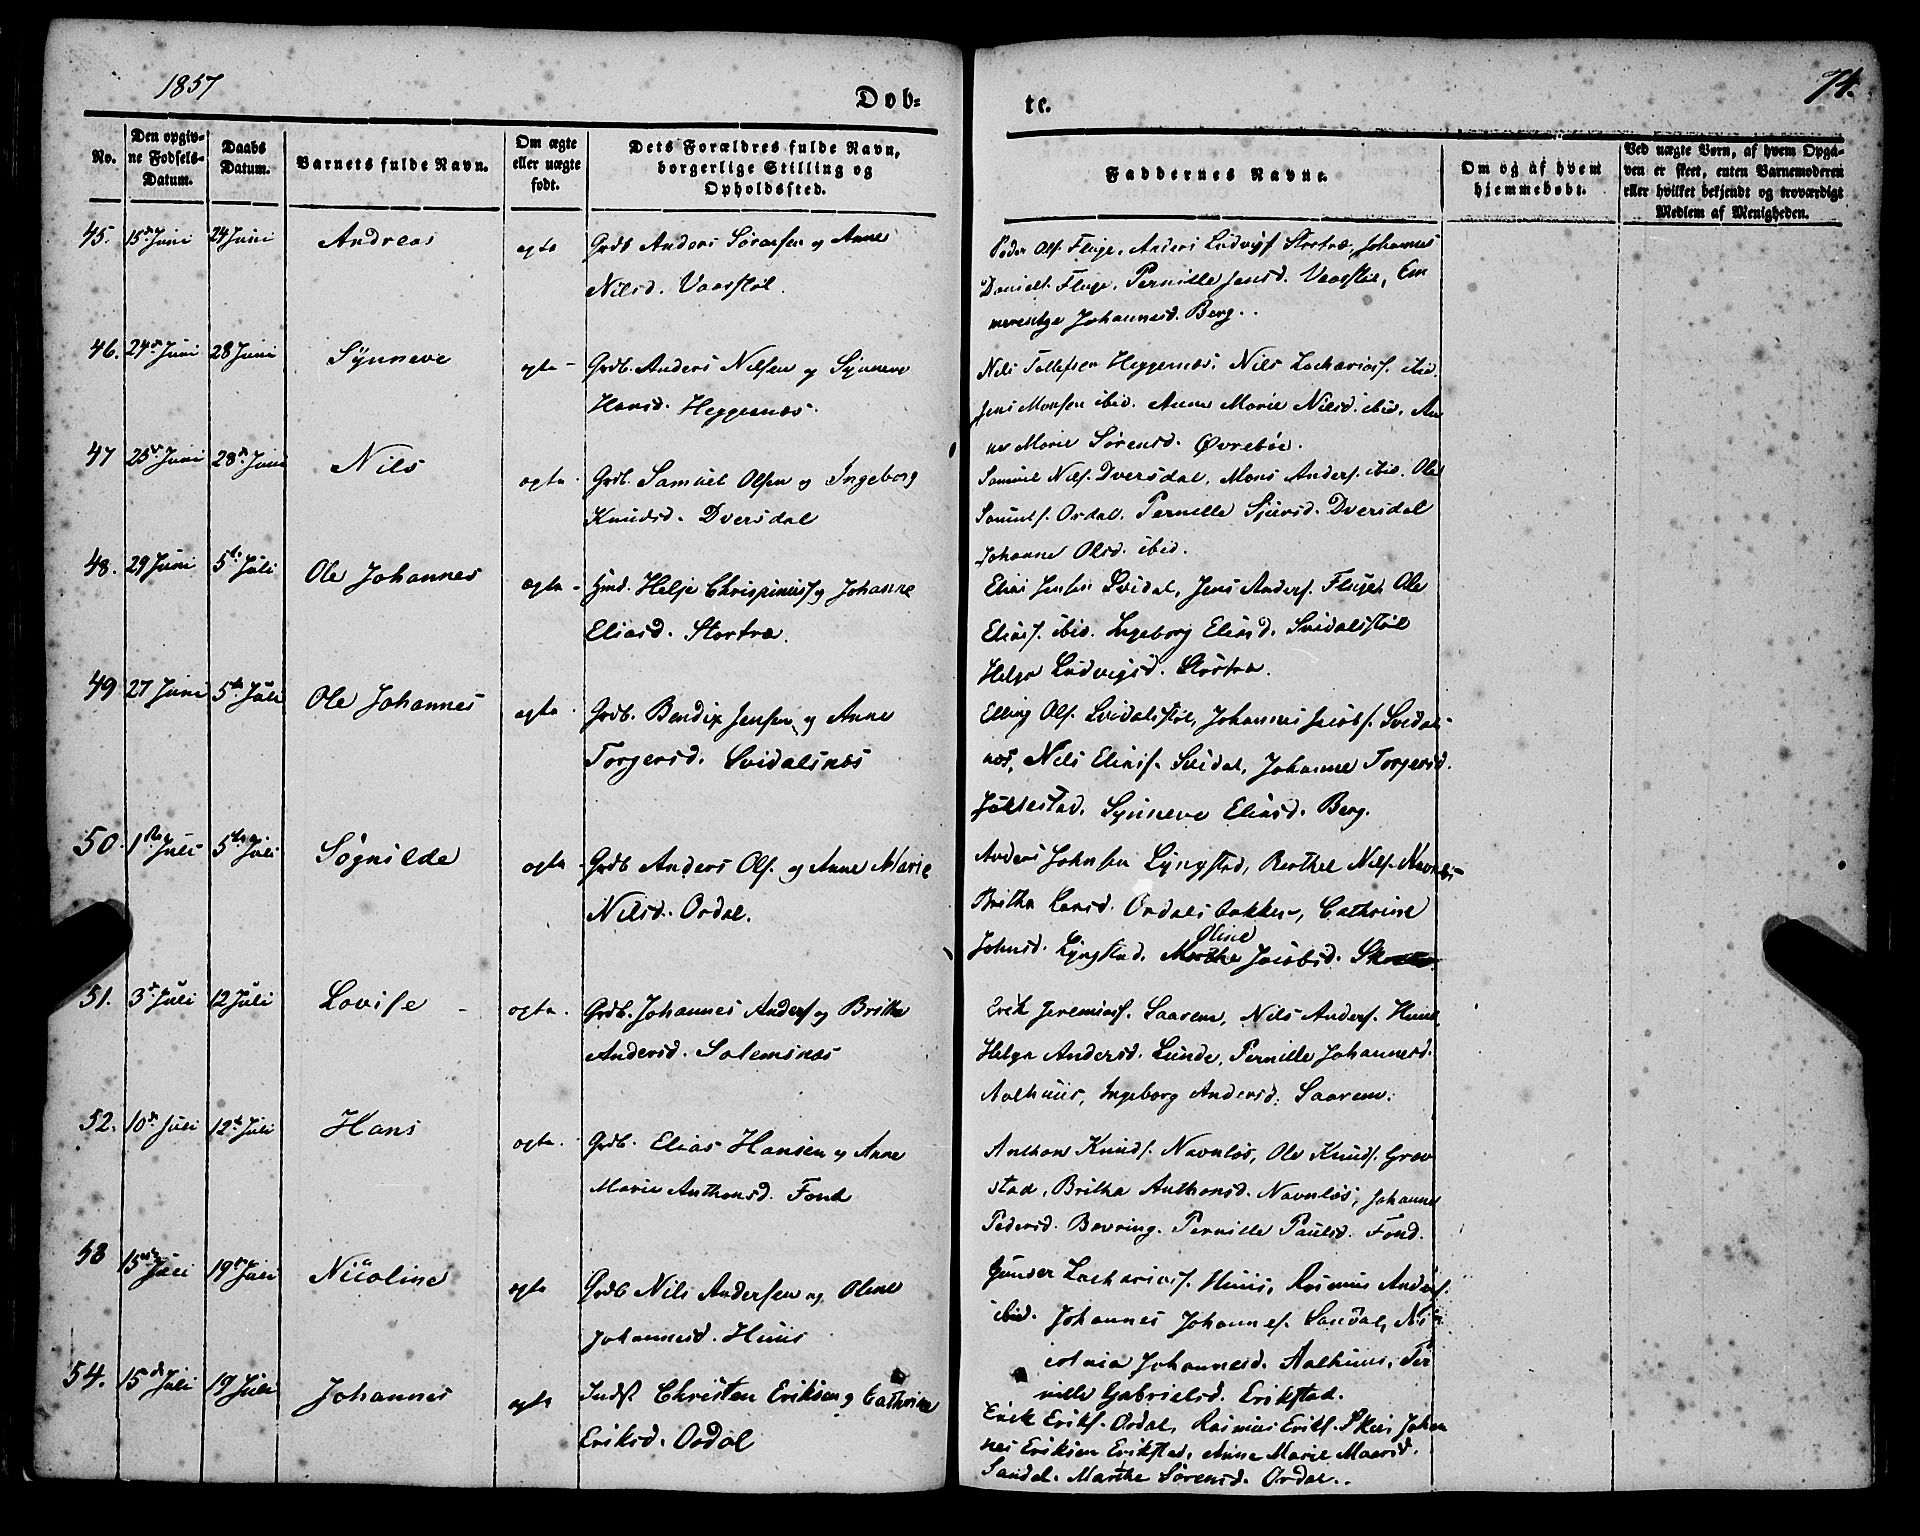 1857
Dob=
te.
74.
No.
Den opgiv-
ne Fødsels-
Datum.
Daabs
Datum.
Barnets fulde Navn.
Om ægte
eller uægte
født.
Dets Forældres fulde Navn,
borgerlige Stilling og
Opholdssted.
Faddernes Navne.
Om og af hvem
hjemmedøbt.
Ved uægte Børn, af hvem Opga-
ven er skeet, enten Barnemoderen
eller hvilket bekjendt og troværdigt
Medlem af Menigheden.
45. 15de Juni 24 Juni Andreas ægte Grdb Anders Sørensen og Anne
Nilsd. Vaasstøl.
Peder Ols. Fluge, Anders Ludvigs. Stortræ, Johannes
Daniels. Fluge. Pernille Jensd. Vaasstøl, Em
merentze Johannesd. Berg.
46. 24de Juni 28 Juni Synneve ægte - Grdb. Anders Nilsen og Synneve
Hansd. Heggenæs.
Nils Tollefsen Heggenæs, Nils Zachariass. ibid.
Jens Monsen ibid. Anne Marie Nilsd. ibid, An
ne Marie Sørensd. Øvrebøe.
47 25de Juni 28de Juni Nils ægte. Grdb. Samuel Olsen og Ingeborg
Knudsd. Dversdal
Samuel Nils. Dversdal, Mons Anders. ibid. Ole
Samuels. Ordal. Pernille Sjursd. Dversdal
Johanne Olsd. ibid.
48. 29 Juni 5te Juli Ole Johannes ægte - Hmd. Helje Chrispinuss og Johanne
Eliasd. Stortræ.
Elias Jensen Svidal, Jens Anders. Fluge, Ole
Eliass. ibid. Ingeborg Eliasd. Svidalstøl
Helga Ludvigsd. Stortræ.
49 27 Juni 5te Juli Ole Johannes ægte. Grdb. Bendix Jensen og Anne
Torgersd. Svidalsnæs
Elling Ols. Svidalstøl, Johannes Jacobs. Svidals
næs, Nils Eliass. Svidal, Johanne Torgersd.
Jølhestad. Synneve Eliasd. Berg.
50. 1ste Juli 5te Juli Søgnilde ægte. Grdb Anders Ols. og Anne Marie
Nilsd. Ordal.
Anders Johnsen Lyngstad, Berthel Nils. Navnløs
Britha Larsd. Ordalsbakken, Cathrine
Johnsd. Lyngstad. Marthe Oline Jacobsd.
51. 3de Juli 12 Juli Lovise - ægte. Grdb. Johannes Anders og Britha
Andersd. Solemsnæs
Erik Jeremiass. Saarem, Nils Anders. Huus,
Helga Andersd. Lunde, Pernille Johannesd.
Aalhuus, Ingeborg Andersd. Saarem.
52. 10de Juli 12te Juli Hans ægte. Grdb. Elias Hansen og Anne
Marie Anthonsd. Fond
Anthon Knuds. Navnløs, Ole Knuds. Grov
stad, Britha Anthonsd. Navnløs, Johanne
Pedersd. Bovring. Pernille Paulsd. Fond.
53 15de Juli 19de Juli Nicoline ægte Grdb Nils Andersen og Oline
Johannesd. Huus
Gunder Zachariass. Huus, Rasmus Anders.
ibid. Johannes Johannes. Sandal, Ni
colaia Johannesd. Aalhuus, Per
nille Gabrielsd. Erikstad.
54. 15de Juli 19 Juli Johannes ægte Indst Christen Eriksen og Cathrine
Eriksd. Ordal
Erik Eriks. Ordal, Rasmus Eriks. Skei, Johan
nes Eriksen Erikstad, Anne Marie Madsd.
Sandal. Marthe Sørensd. Ordal.